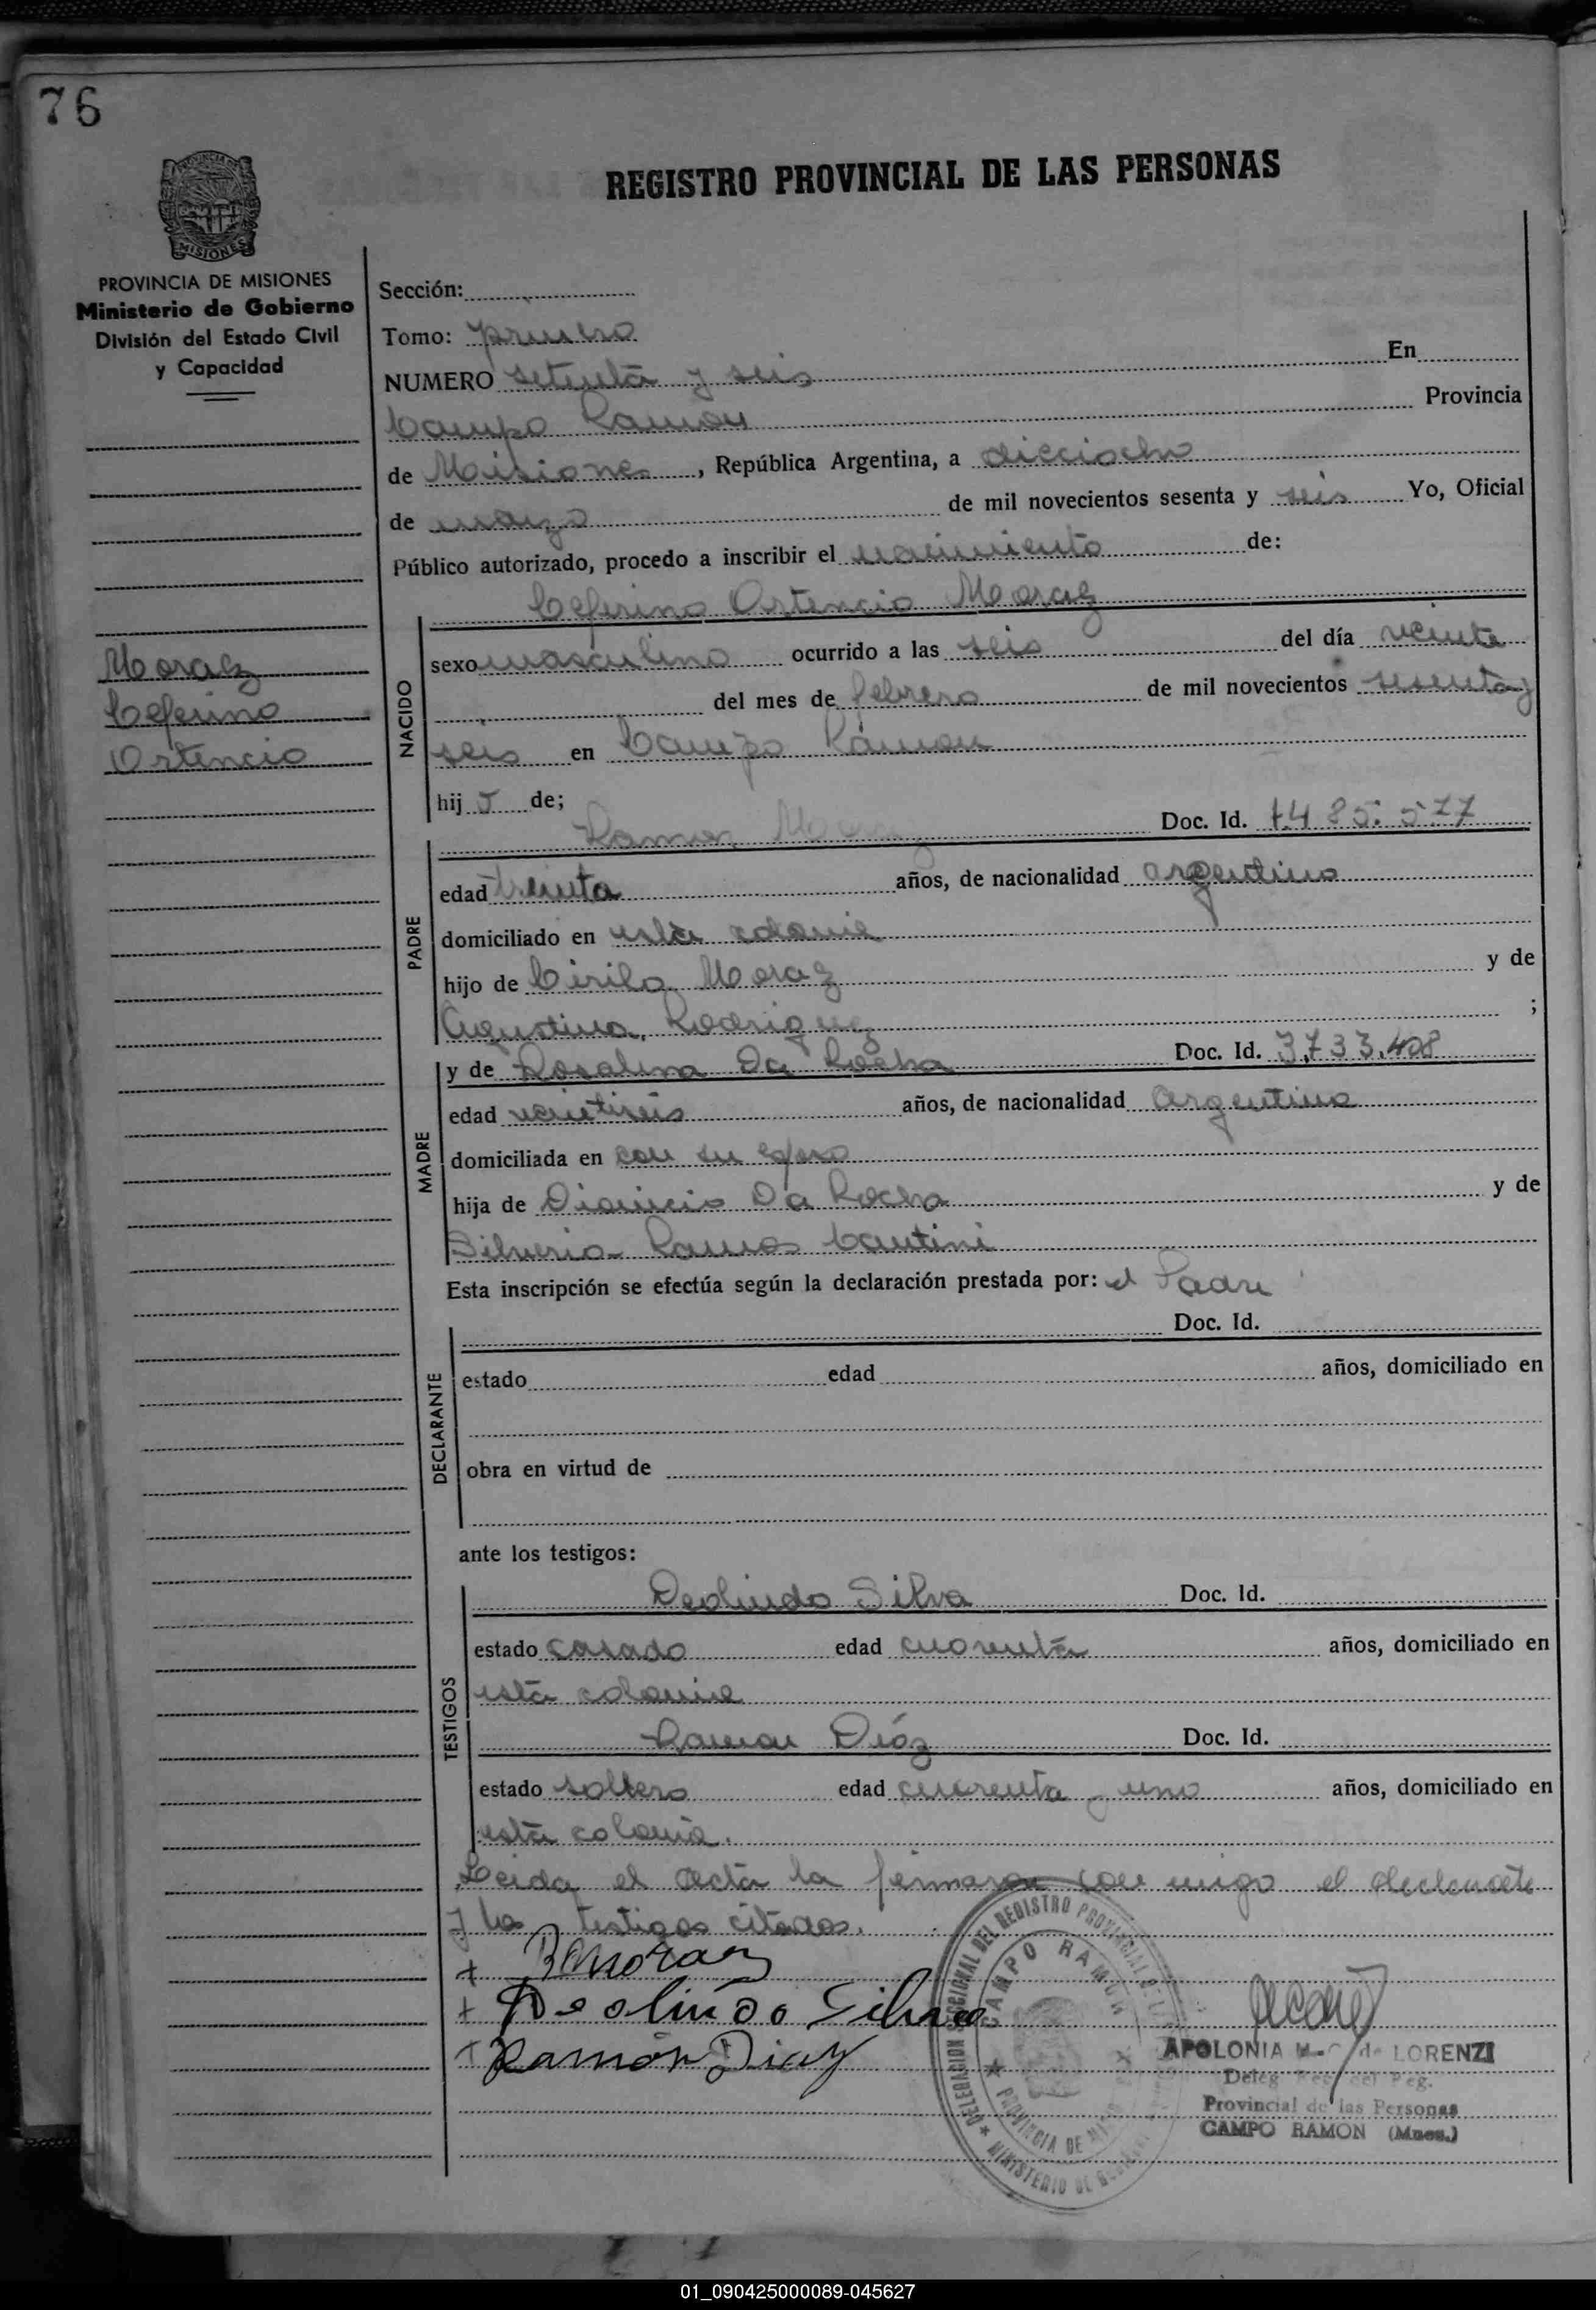 76
REGISTRO PROVINCIAL DE LAS PERSONAS
PROVINCIA DE MISIONES
Ministerio de Gobierno
División del Estado Civil
y Capacidad
Moraz
Ceferino
Ortencio
Sección:
Tomo: primero
NUMERO setenta y seis En
Campo Ramon Provincia
de Misiones, República Argentina, a dieciocho
de marzo de mil novecientos sesenta y seis Yo, Oficial
Público autorizado, procedo a inscribir el nacimiento de:
Ceferino Ortencio Moraz
NACIDO
sexo masculino ocurrido a las seis del día veinte
del mes de febrero de mil novecientos sesenta y
seis en Campo Ramon
hijo de;
Ramon Moraz Doc. Id. 7.485.577
PADRE
edad treinta años, de nacionalidad argentino
domiciliado en esta colonia
hijo de Cirilo Moraz y de
Agustina Rodriguez ;
y de Rosalina Da Rocha Doc. Id. 3.733.408
MADRE
edad veintiseis años, de nacionalidad Argentina
domiciliada en con su esposo
hija de Dionicio Da Rocha y de
Silveria Ramos Cantini
Esta inscripción se efectúa según la declaración prestada por: el Padre
Doc. Id.
DECLARANTE
estado edad años, domiciliado en
obra en virtud de
ante los testigos:
Deolindo Silva Doc. Id.
TESTIGOS
estado casado edad cuarenta años, domiciliado en
esta colonia
Ramon Diáz Doc. Id.
estado soltero edad cuarenta y uno años, domiciliado en
esta colonia.
Leida el acta la firmaron con migo el declarante
y los testigos citados.
+ R Moraz
+ Deolindo Silva
+ Ramón Diaz
DELEGACION SECCIONAL DEL REGISTRO PROVINCIAL DE
CAMPO RAMON
PROVINCIA DE
MINISTERIO DE
APOLONIA de LORENZI
Deleg. Reg.
Provincial de las Personas
CAMPO RAMON (Mnes.)
01_090425000089-045627